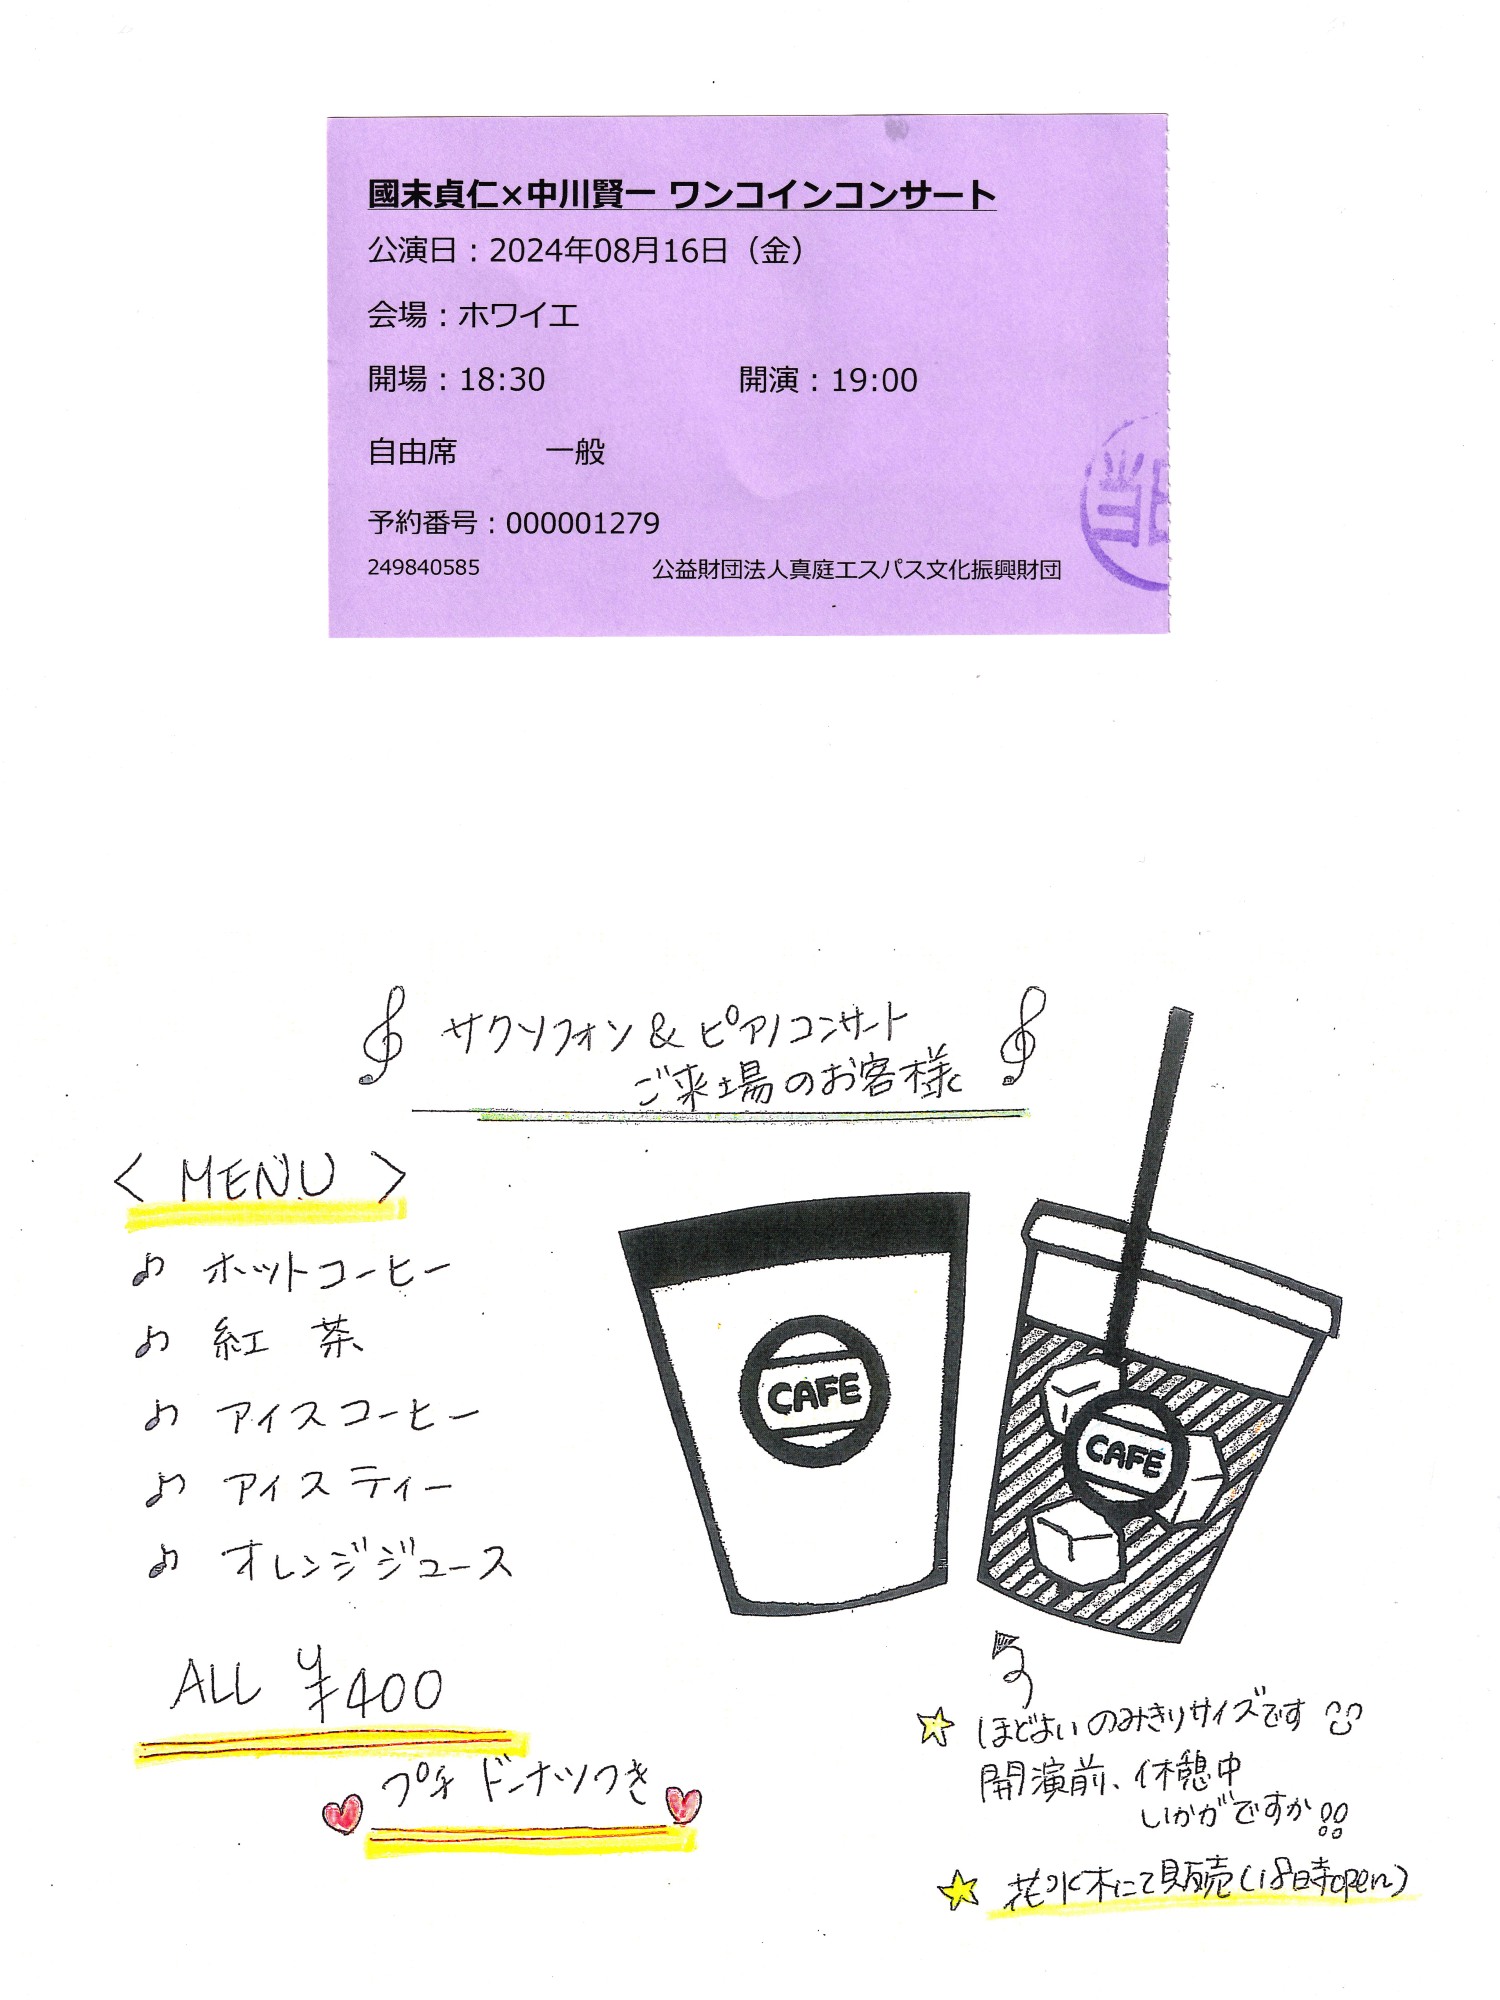 國末貞仁×中川賢一 ワンコインコンサート
公演日：2024年08月16日（金）
会場：ホワイエ
開場：18:30 開演：19:00
自由席 一般
予約番号：000001279
249840585 公益財団法人真庭エスパス文化振興財団
サクソフォン＆ピアノコンサート
ご来場のお客様
＜MENU＞
♪ ホットコーヒー
♪ 紅茶
♪ アイスコーヒー
♪ アイスティー
♪ オレンジジュース
CAFE
CAFE
ALL ¥400
プチドーナツつき
☆ ほどよいのみきりサイズです
開演前、休憩中
いかがですか!!
☆ 花水木にて販売(18時open)